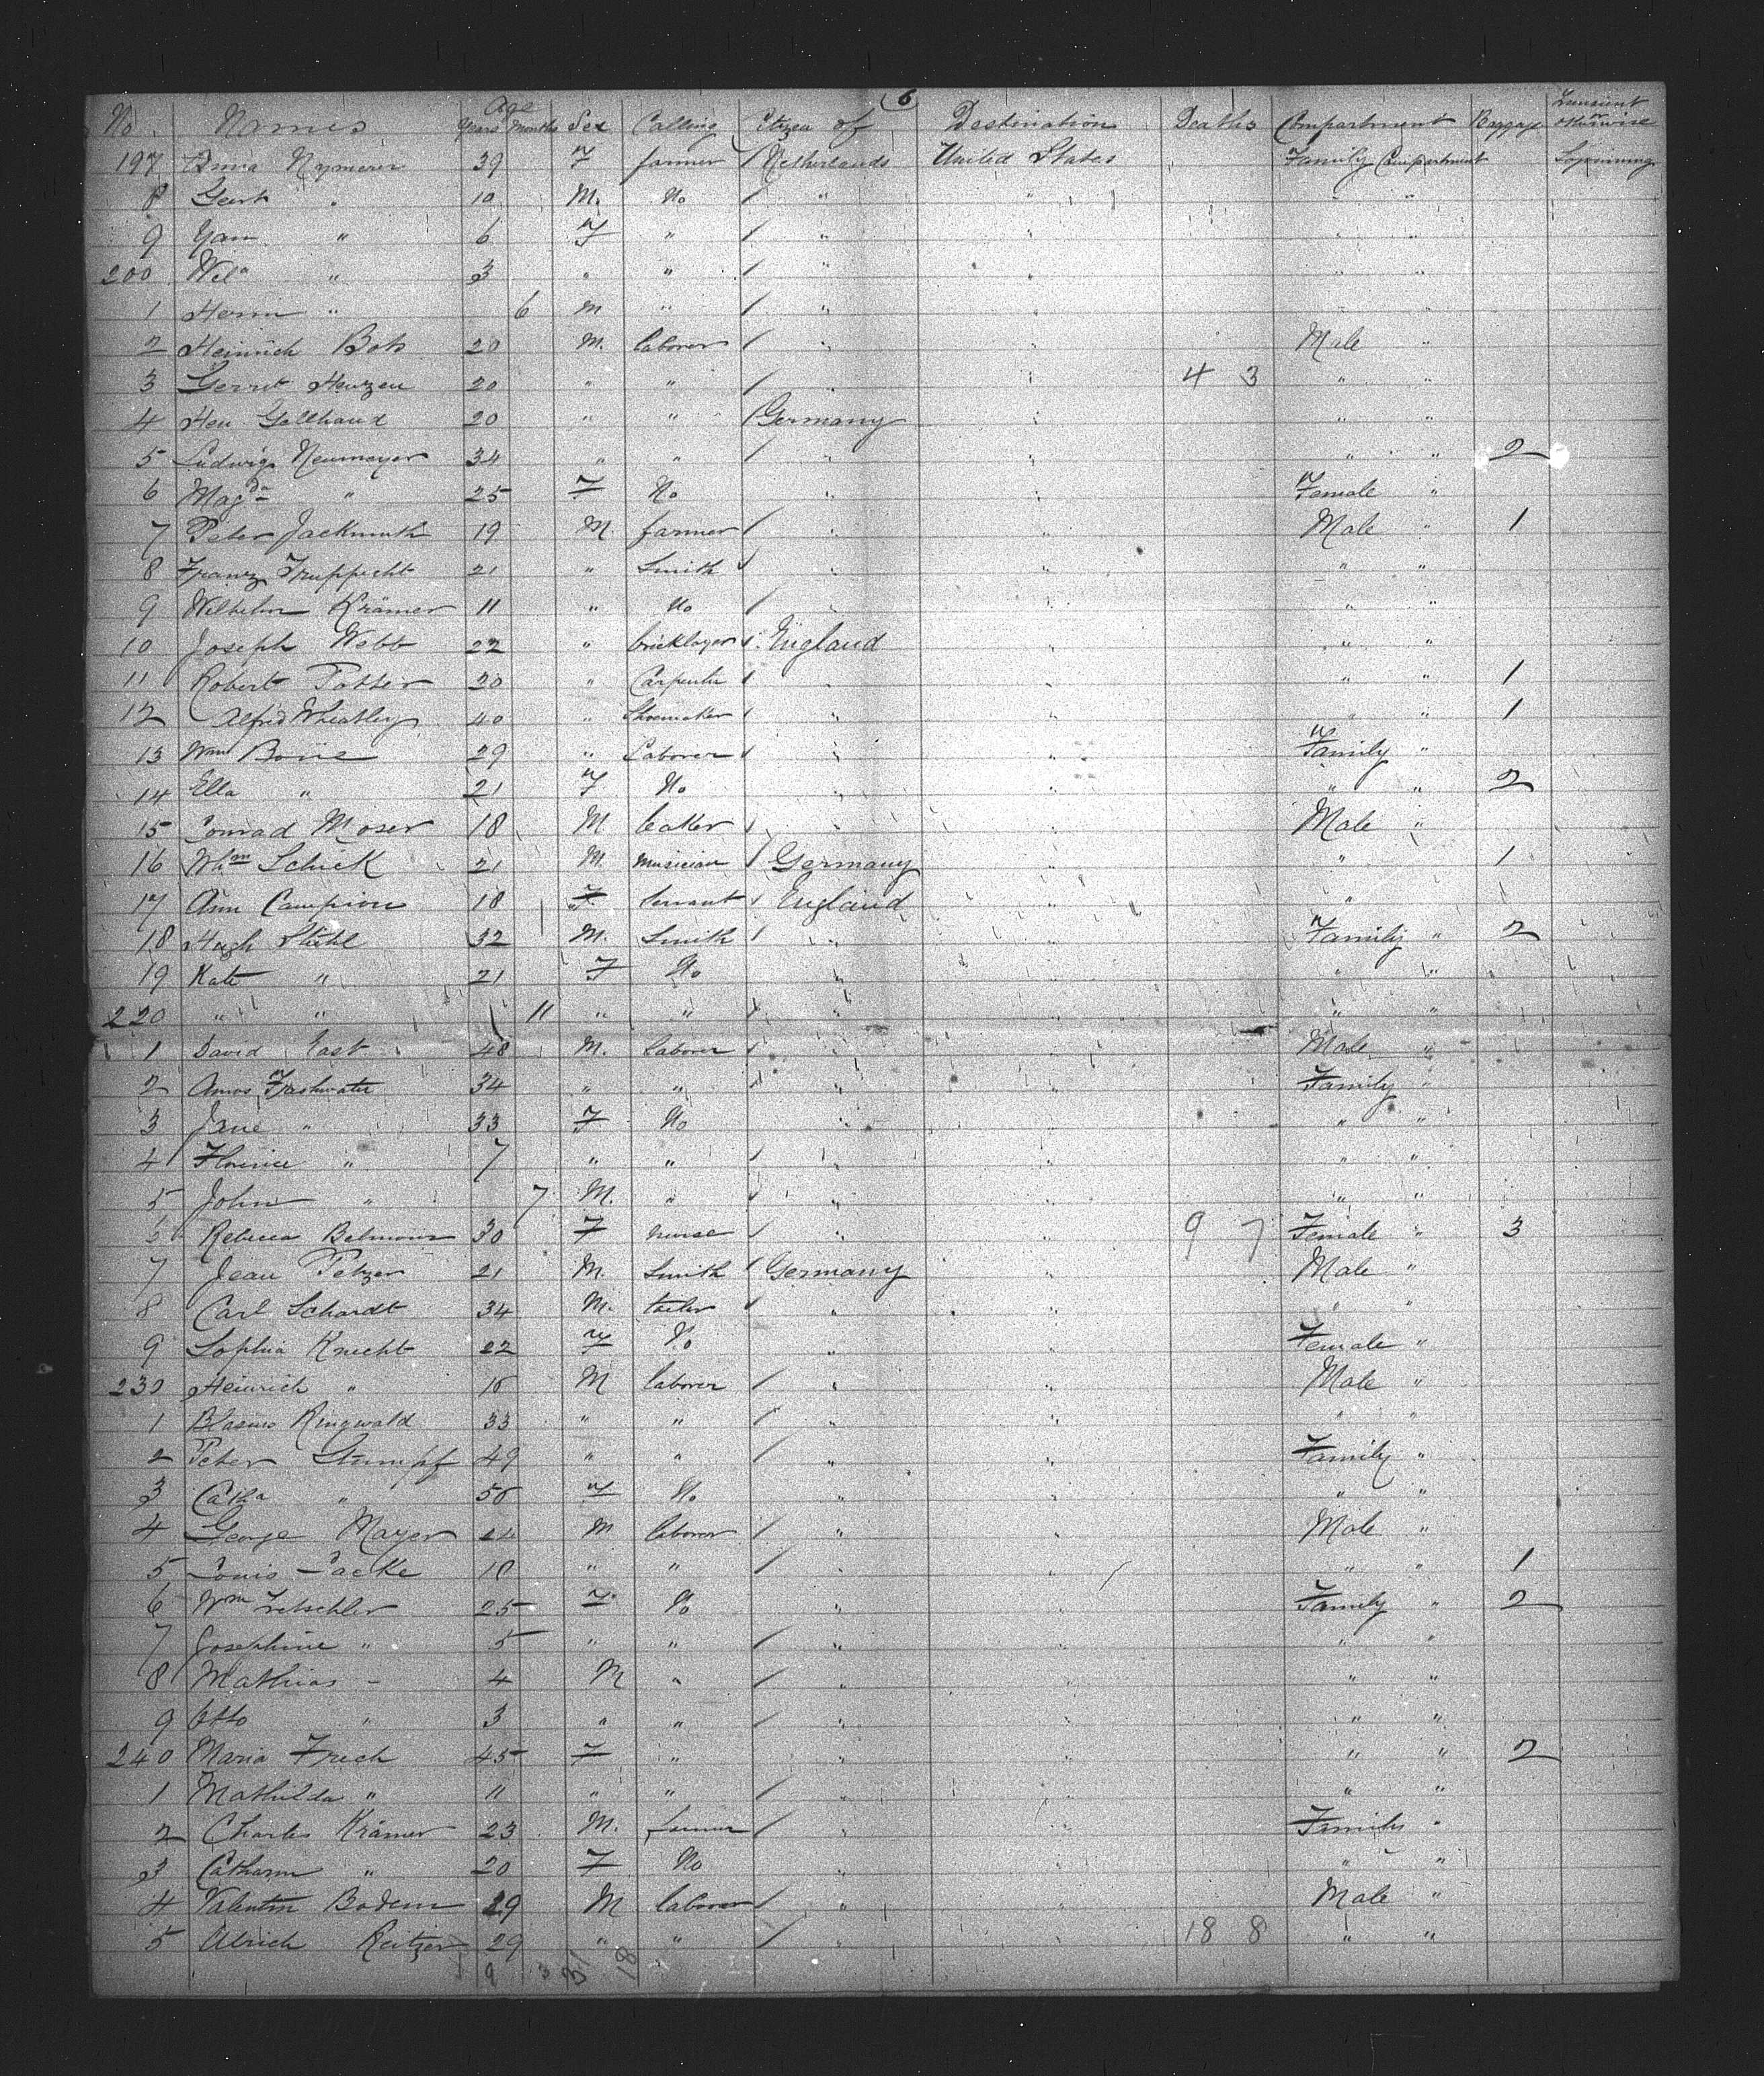 6
No Names Age Years Months Sex Calling Citizen of Destination Deaths Compartment Baggage Transient or otherwise
197 Anna Nymerer 39 F farmer / Netherlands United States Family Compartment
8 Geert " 10 M. No / " " " "
9 Yan " 6 F " / " " " "
200 Wil<sup>a</sup> " 3 " " / " " " "
1 Herm " 6 M " / " " " "
2 Heinrich Bots 20 M. laborer / " " Male "
3 Gerrit Henzen 20 " " / " " 4 3 " "
4 Hen Gellhaud 20 " " Germany " " "
5 Ludwig Neumeyer 34 " " / " " " " 2
6 Mag<sup>da</sup> " 25 F No " " Female "
7 Peter Jackmuth 19 M. farmer / " " Male " 1
8 Franz Truppecht 21 " Smith / " " " "
9 Wilhelm Krämer 11 " No / " " " "
10 Joseph Webb 22 " bricklayer / England " " "
11 Robert Potter 20 " Carpenter / " " " " 1
12 Alfred Wheatley 40 " Shoemaker / " " " " 1
13 Wm 29 " Laborer / " " Family "
14 Ella " 21 F No " " " " 2
15 Conrad Moser 18 M baker / " " Male "
16 Whm Schick 21 M. musician / Germany " " 1
17 Ann Campion 18 F. Servant / England " "
18 Hugh Stahl 32 M. Smith / " " Family " 2
19 Kate " 21 F No " " " "
220 " " 11 " " / " " " "
1 David East 48 M. laborer / " " Male "
2 Amos Freshwater 34 " " / " " Family "
3 Jane " 33 F No " " " "
4 Florence " 7 " " / " " " "
5 John " 7 M. " / " " " "
6 Rebecca 30 F nurse / " " 9 7 Female " 3
7 Jean Petzer 21 M. Smith / Germany " Male "
8 Carl Schardt 34 M. tailor / " " " "
9 Sophia Knecht 22 F No " " Female "
230 Heinrich " 18 M laborer / " " Male "
1 Blasius Ringwald 33 " " / " " " "
2 Peter Stumpf 49 " " / " " Family "
3 Cath<sup>a</sup> " 50 F No " " " "
4 George Mayer 24 M laborer / " " Male "
5 Louis Packe 18 " " / " " " " 1
6 Wm Fretschler 25 F No " " Family " 2
7 Josephine " 5 " " / " " " "
8 Mathias " 4 M " / " " " "
9 Otto " 3 " " / " " " "
240 Maria Frech 45 F " " " " " 2
1 Mathilda " 11 " " / " " " "
2 Charles Krämer 23 M. farmer / " " Family "
3 Catharin " 20 F No " " " "
4 Valentin Bodem 29 M laborer / " " Male "
5 Ulrich Reitzer 29 " " / " " 18 8 " "
9 3 31 18